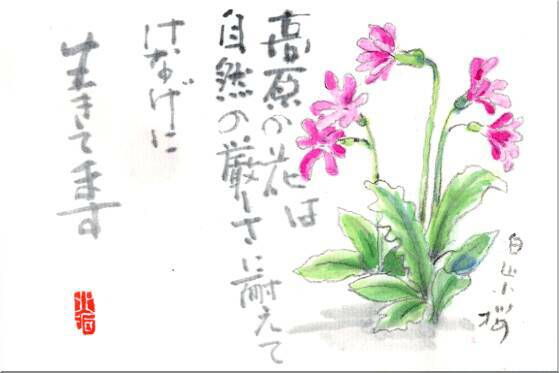 白山小桜
高原の花は
自然の厳しさに耐えて
けなげに
生きてます